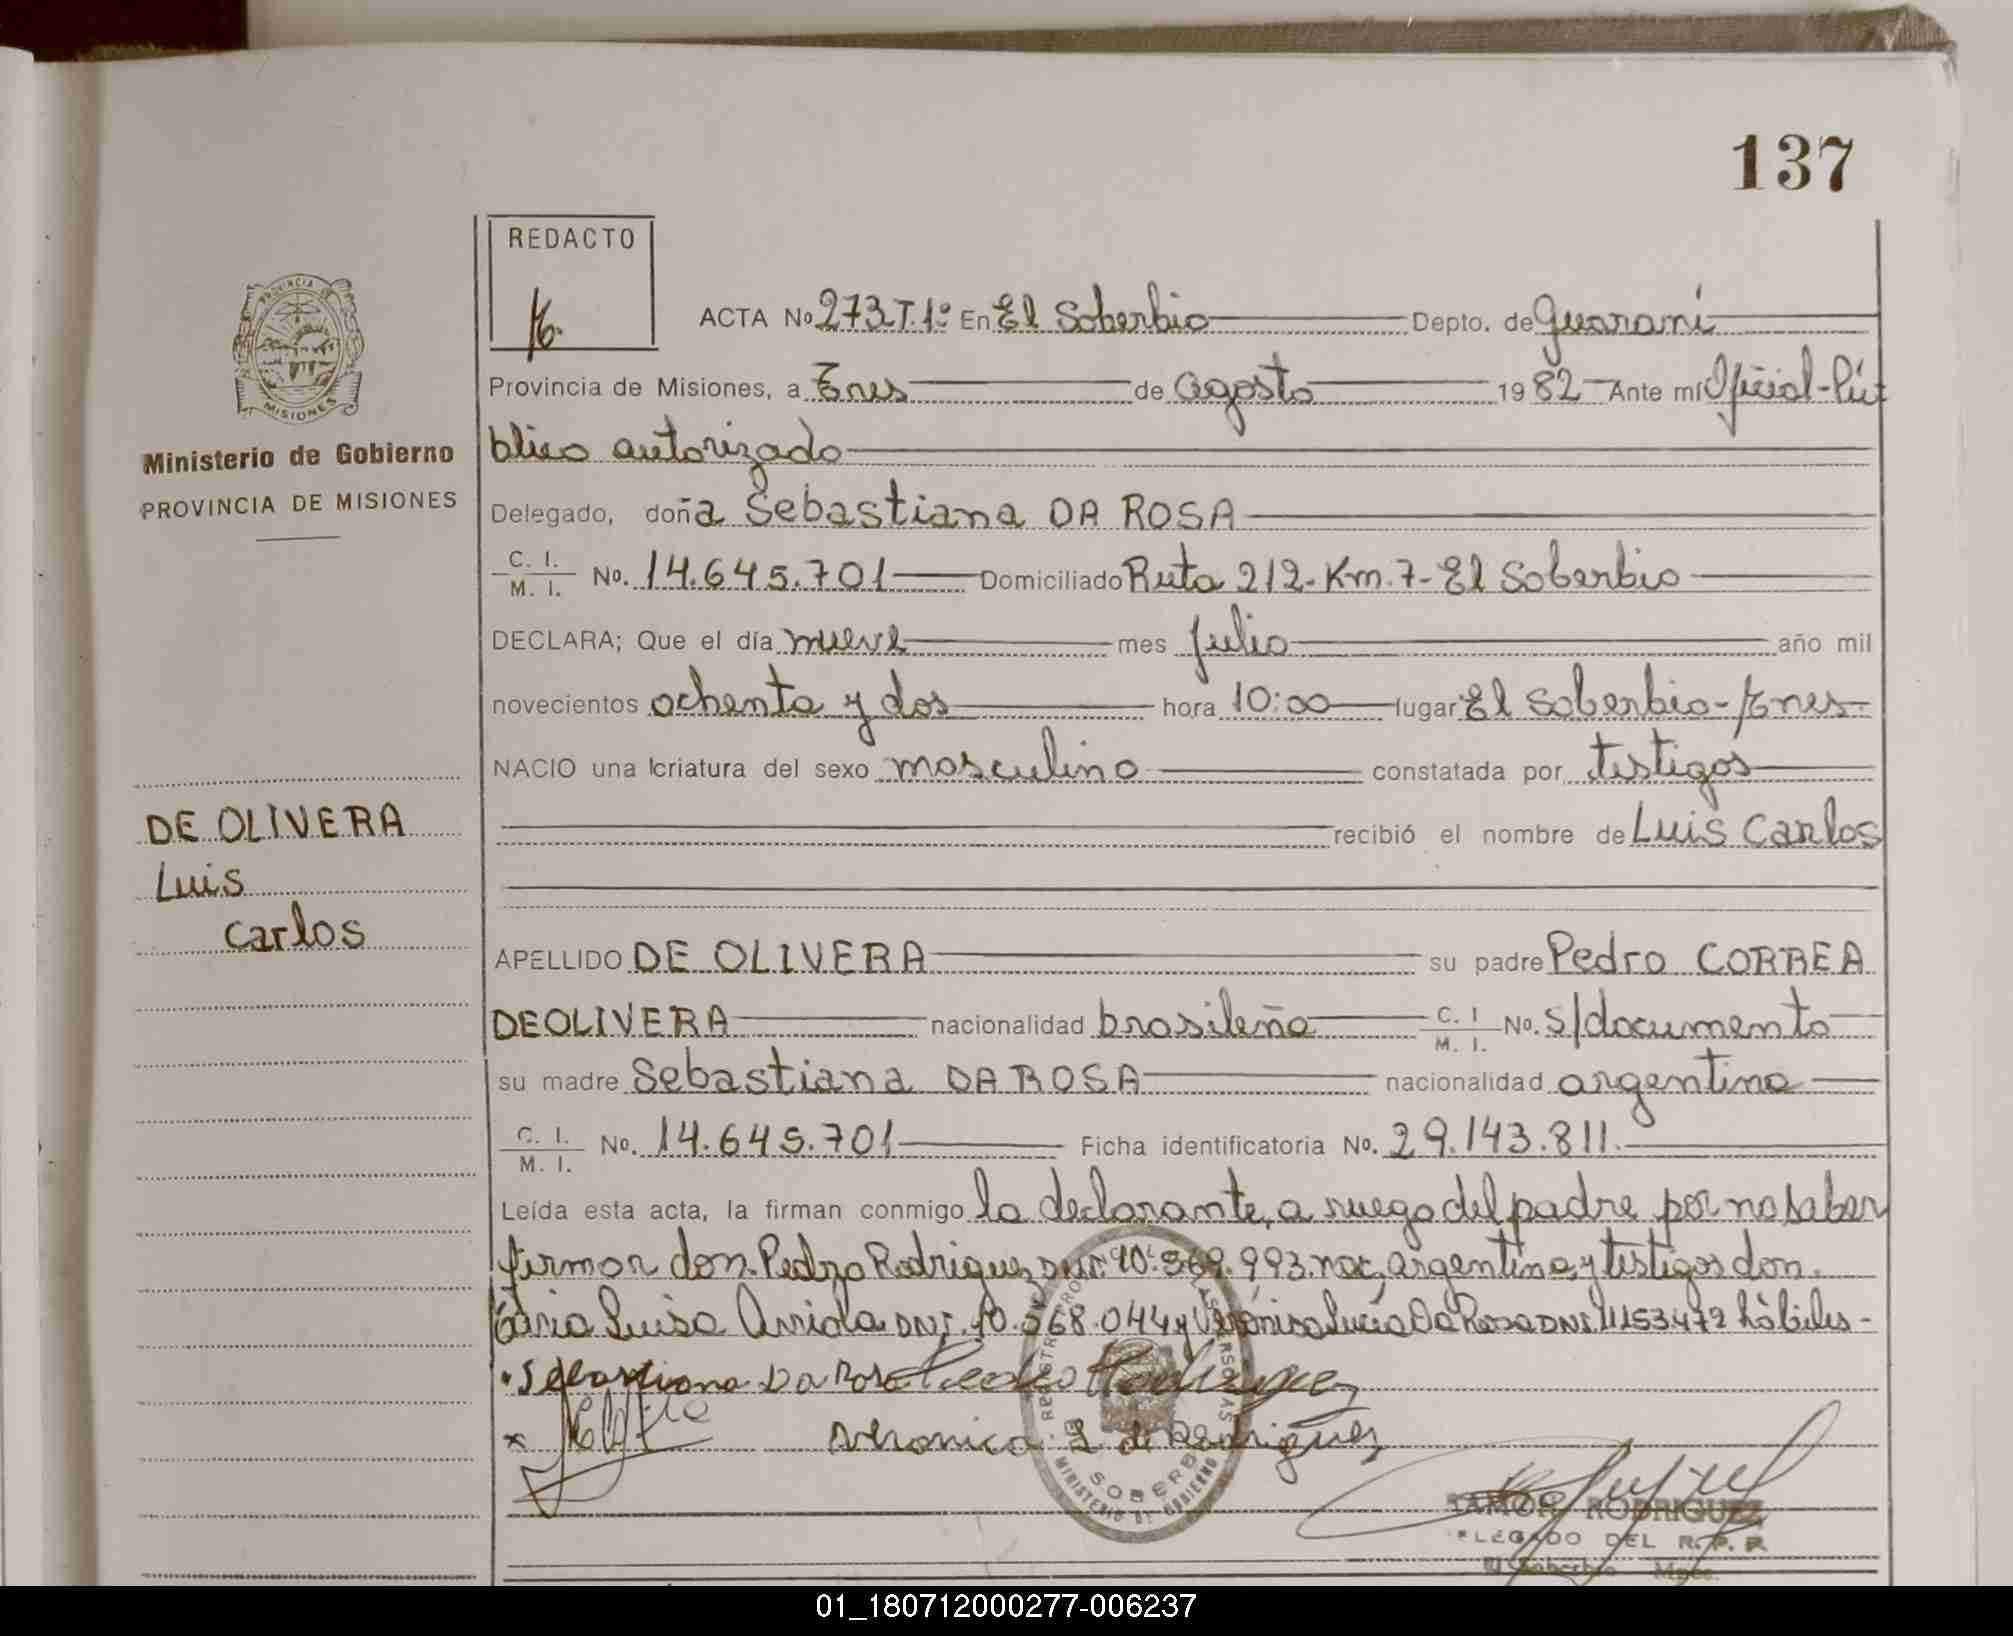 137
REDACTO
ACTA No 273.T.1º En El Soberbio Depto. de Guaraní
Provincia de Misiones, a Tres de Agosto 1982 Ante mí Oficial-Pú
blico autorizado
Ministerio de Gobierno
PROVINCIA DE MISIONES
PROVINCIA DE
MISIONES
Delegado, doña Sebastiana DA ROSA
C. I.
M. I. No. 14.645.701 Domiciliado Ruta 212-Km.7-El Soberbio
DECLARA; Que el día nueve mes Julio año mil
novecientos ochenta y dos hora 10:00 lugar El Soberbio-Mnes-
NACIO una criatura del sexo masculino constatada por testigos
recibió el nombre de Luis Carlos
DE OLIVERA
Luis
Carlos
APELLIDO DE OLIVERA su padre Pedro CORREA
DEOLIVERA nacionalidad brasileña C. I
M. I. No. s/documento
su madre Sebastiana DA ROSA nacionalidad argentina
C. I.
M. I. No. 14.645.701 Ficha identificatoria No. 29.143.811.
Leída esta acta, la firman conmigo la declarante, a ruego del padre por no saber
firmar don Pedro Rodriguez DNI. 10.569.993. nac, argentina y testigos don
María Luisa Arriola DNI. 10.568.044 y Verónica Lucía Da Rosa DNI 11153472 hábiles-
Sebastiana Da Rosa Pedro Rodriguez
x Veronica L de Rodriguez
SOBERBIO
MINISTERIO DE GOBIERNO
RAMON RODRIGUEZ
DELEGADO DEL R. P. P.
El Soberbio Mnes.
01_180712000277-006237